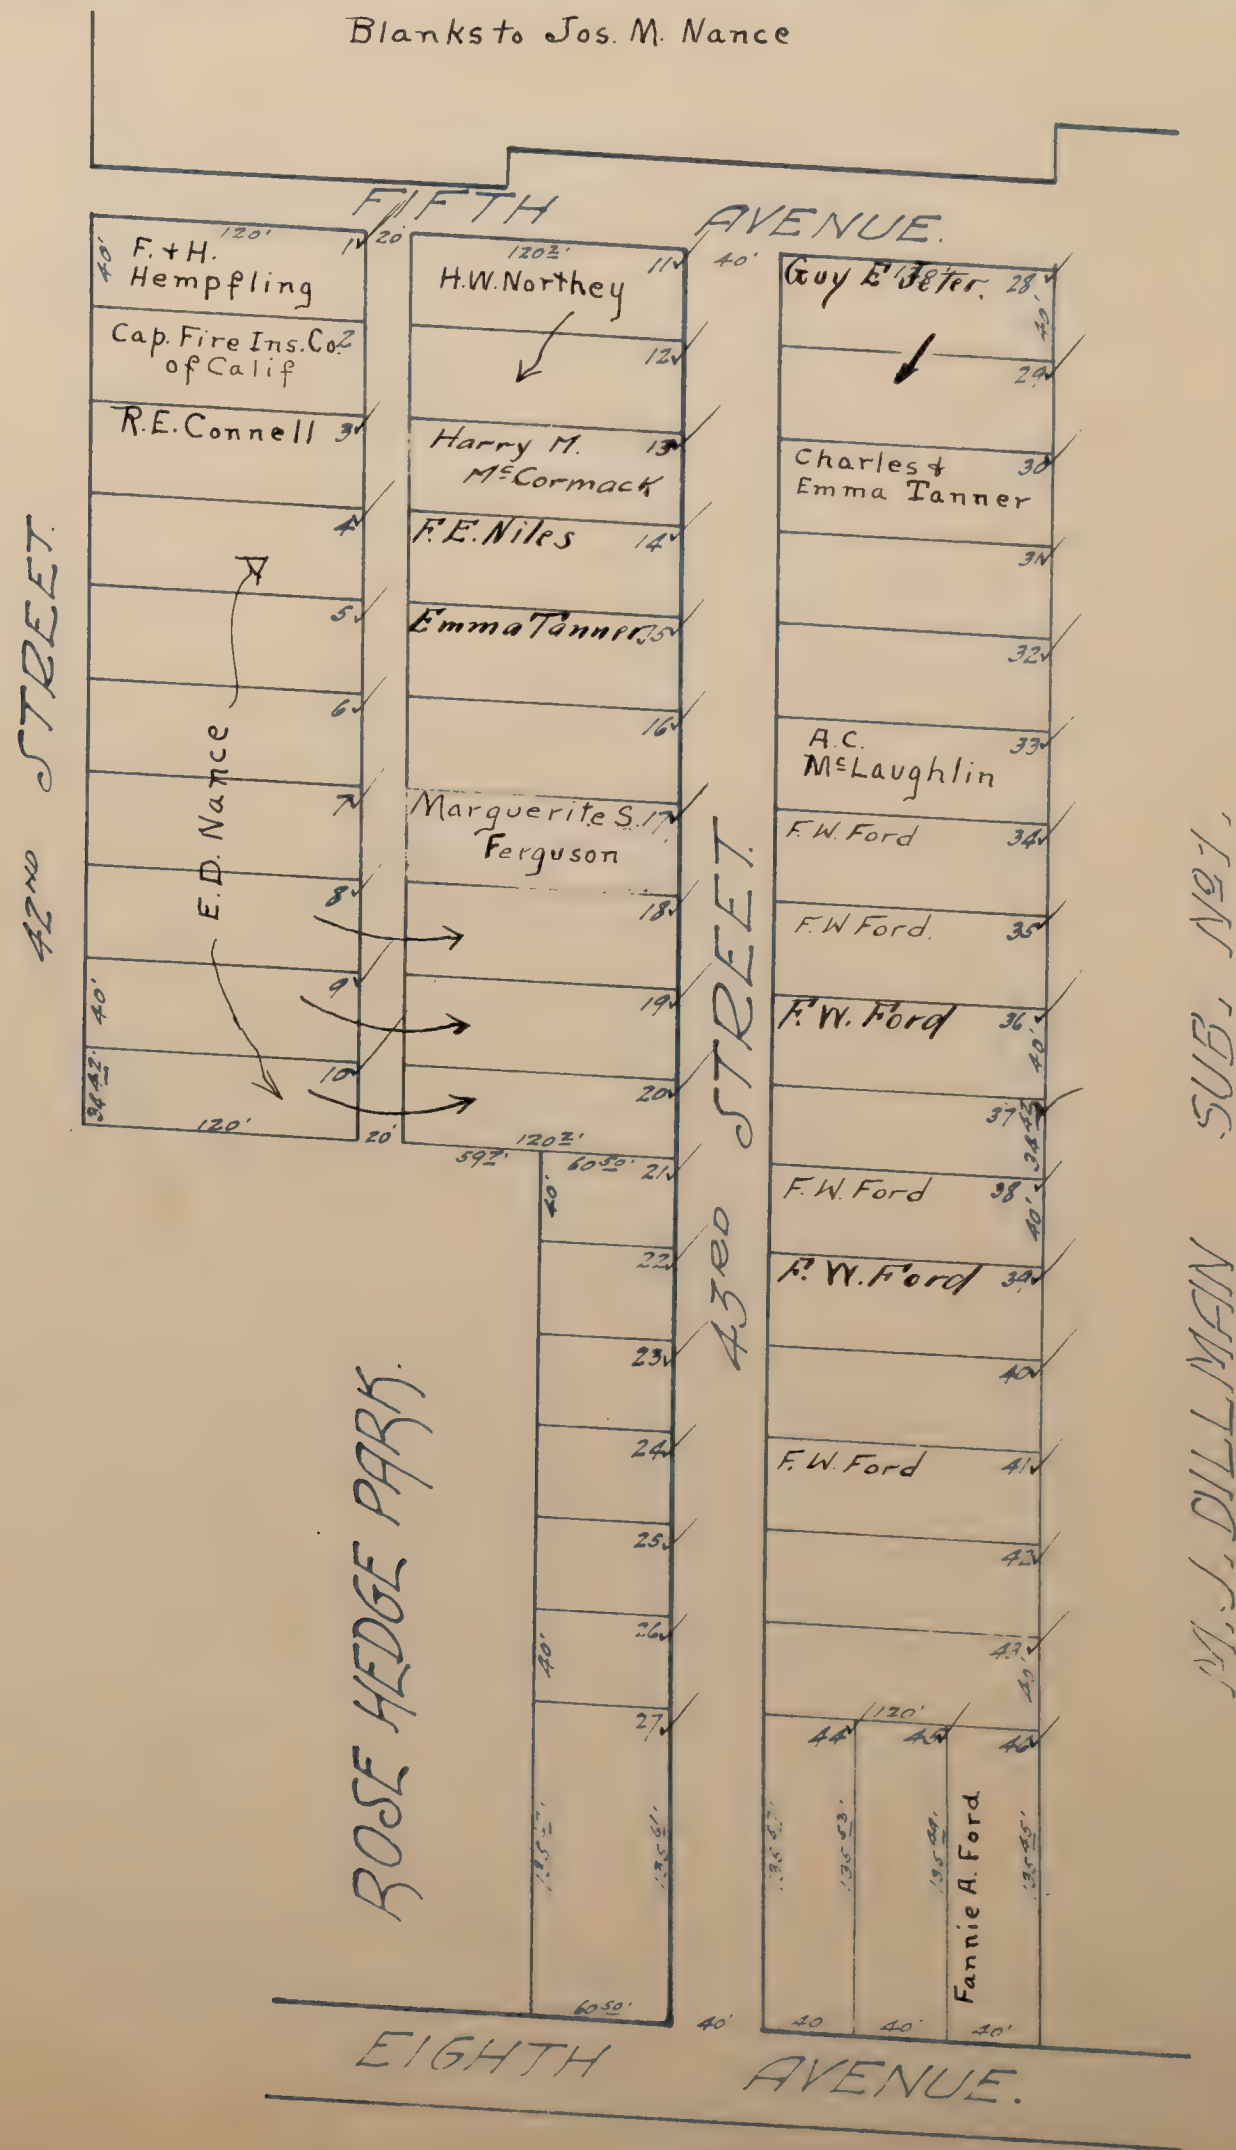 Blanks to Jos. M. Nance
FIFTH AVENUE.
42ND STREET.
120'
1
20'
40'
F. & H.
Hempfling
Cap. Fire Ins. Co.
of Calif
2
R.E. Connell 3
4
5
6
7
8
9
10
E.D. Nance
40'
120'
20'
120 2'
11
40'
H.W. Northey
12
Harry M.
McCormack
13
F.E. Niles 14
Emma Tanner 15
16
Marguerite S. 17
Ferguson
18
19
20
120 2'
59 7'
60 50'
21
40'
22
23
24
25
26
40'
27
135 61'
60 50'
43RD STREET.
Guy E. Jeter. 28
40'
29
Charles &
Emma Tanner
30
31
32
A.C.
McLaughlin
33
F.W. Ford 34
F.W Ford. 35
F.W. Ford 36
40'
37
F.W. Ford 38
40'
F.W. Ford 39
40
F.W. Ford 41
42
43
40'
120'
44
45
46
135 53'
135 49'
135 45'
Fannie A. Ford
40'
40
40'
40'
ROSE HEDGE PARK.
EIGHTH AVENUE.